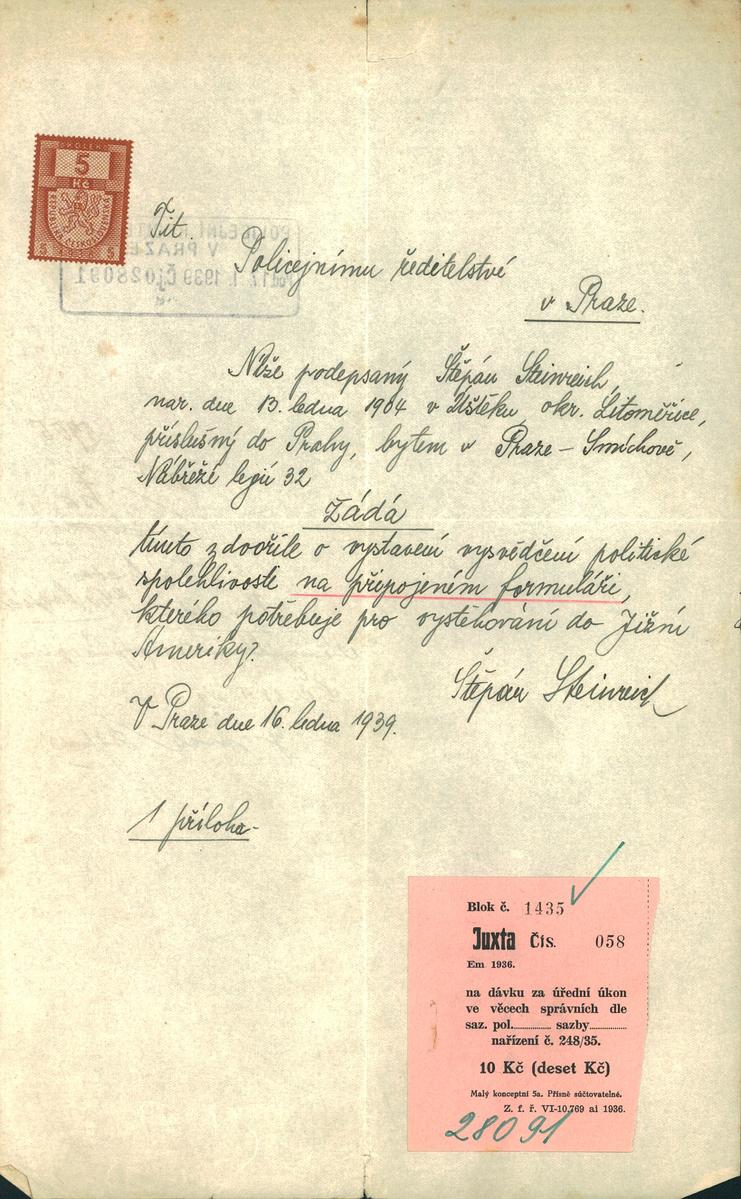 KOLEK
5
Kč
5 5
Tit.
Policejnímu ředitelství
v Praze.
V PRAZE
17. I. 1939 Čj 028091
Níže podepsaný Štěpán Steinreich,
nar. dne 13. ledna 1904 v Úštěku, okr. Litoměřice,
příslušný do Prahy, bytem v Praze – Smíchově,
Nábřeží legií 32
žádá
tímto zdvořile o vystavení vysvědčení politické
spolehlivosti na připojeném formuláři,
kterého potřebuje pro vystěhování do Jižní
Ameriky.
Štěpán Steinreich
V Praze dne 16. ledna 1939.
1 příloha
Blok č. 1435
Juxta Čís. 058
Em 1936.
na dávku za úřední úkon
ve věcech správních dle
saz. pol............ sazby............
nařízení č. 248/35.
10 Kč (deset Kč)
Malý konceptní 5a. Přísně súčtovatelné.
Z. f. ř. VI-10.769 ai 1936.
28091